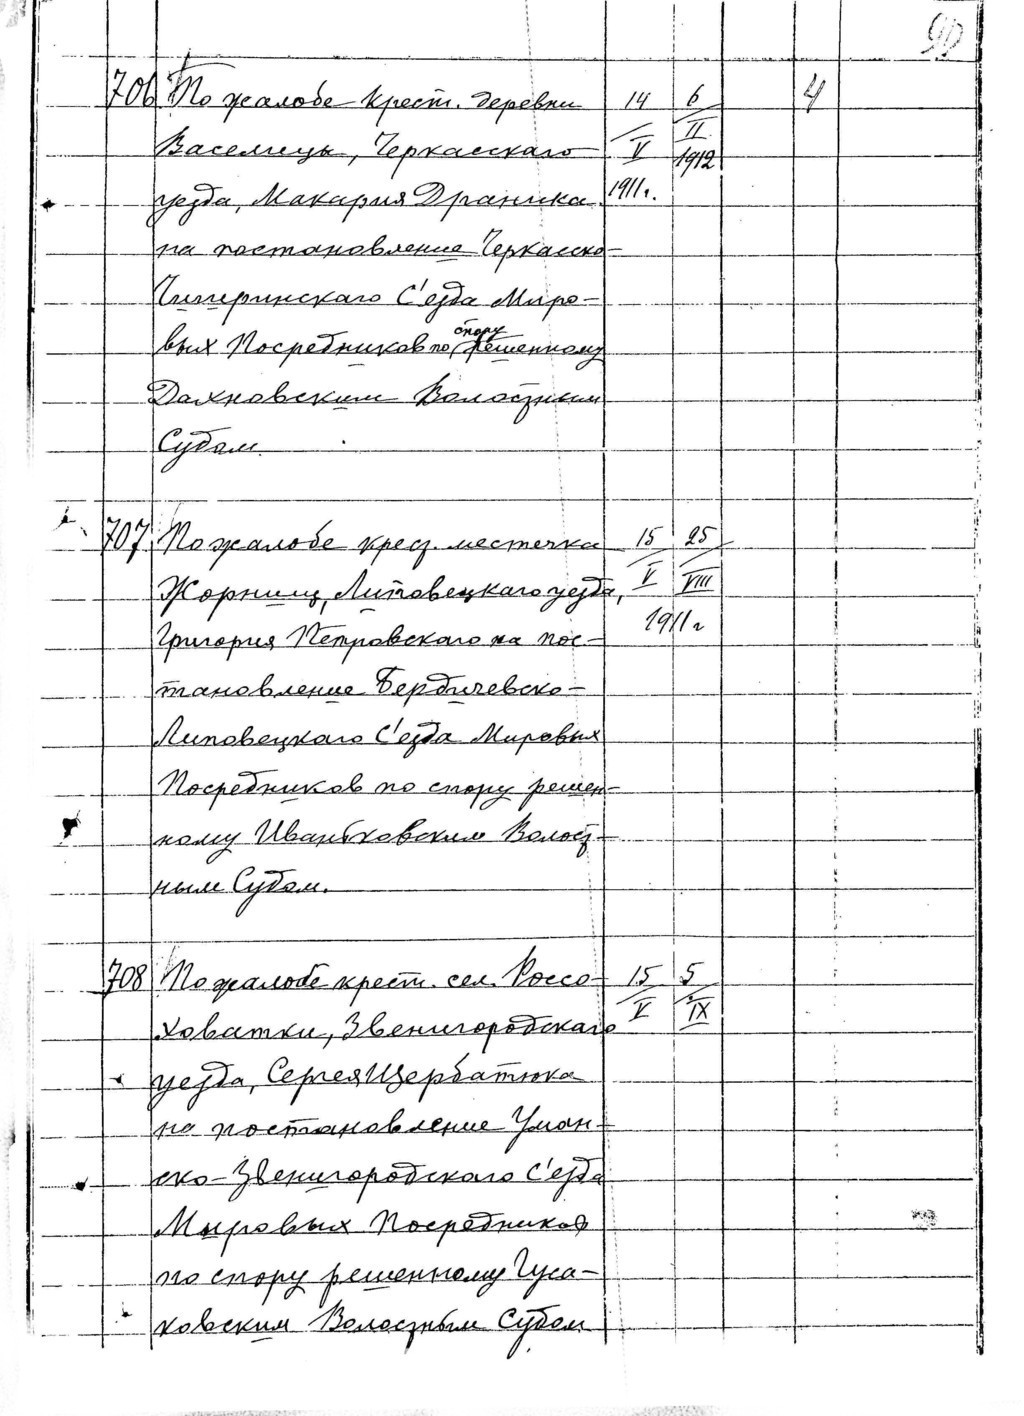 92
706 По жалобе крест. деревни 14/V 1911г. 6/II 1912 4
Васелицы, Черкасскаго
уезда, Макария Драника
на постановление Черкасско-
Чигиринскаго С'езда Миро-
вых Посредников по спору решенному
Дахновским Волостным
Судом.
707 По жалобе крест. местечка 15/V 25/VIII 1911г
Жорнищ, Липовецкаго уезда,
Григория Петровскаго на пос-
тановление Бердичевско-
Липовецкаго С'езда Мировых
Посредников по спору решен-
ному Иваньковским Волост-
ным Судом.
708 По жалобе крест. сел. Россо- 15/V 5/IX
ховатки, Звенигородскаго
уезда, Сергея Щербатюка
на постановление Уман-
ско-Звенигородскаго С'езда
Мировых Посредников
по спору решенному Гуса-
ковским Волостным Судом